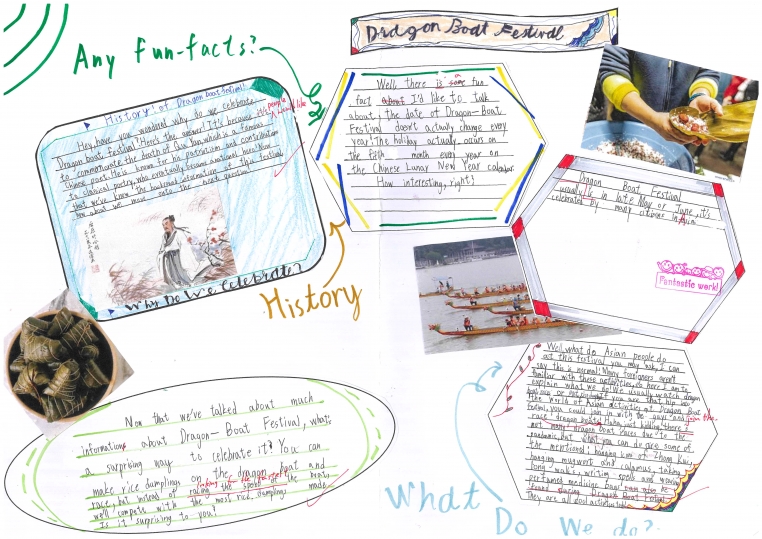 Dragon Boat Festival
Any Fun-facts?
History! of Dragon boat festival!
Hey, have you wondered why do we celebrate
Dragon boat festival? Here's the answer! It's because people would like
to commemorate the death of Qu Yuan, which is a famous
Chinese poet. He is known for his patriotism and contribution
to classical poetry, who eventually became a national hero! Now
that we've know the backround information of this festival,
how about we move onto the next question?
Why Do We Celebrate?
Well there is some fun
fact about I'd like to talk
about, the date of Dragon-Boat
Festival doesn't actually change every
year! The holiday actually occurs on
the fifth month every year on
the Chinese Lunar New Year calendar.
How interesting, right?
History
Dragon Boat Festival
usually is in late May or June, it's
celebrated by many citizens in Asia.
Fantastic work!
Well, what do Asian people do
at this festival you may ask, I can
say this is normal! Many foreigners aren't
familiar with these activities, so here I am to
explain what we do! We usually watch dragon
the World of Asian activities at Dragon Boat
Festival, you could join in with the guys and join the
race! dragon boats! Haha, just kidding, there's
not many dragon Boat Races due to the
pandemic, but what you can do are some of
the mentioned: hanging icon of Zhong Kui,
hanging mugwort and calamus, taking
long walks, writing spells and wearing
perfumed medicine bags
Dragon Boat Festival
They are all cool activities
What
Do We do?
Now that we've talked about much
information about Dragon-Boat Festival, what's
a surprising way to celebrate it? You can
make rice dumplings on the dragon boat and
race, but instead of racing the speed of the boat,
we'll compete with the most rice dumplings made
Is it surprising to you?